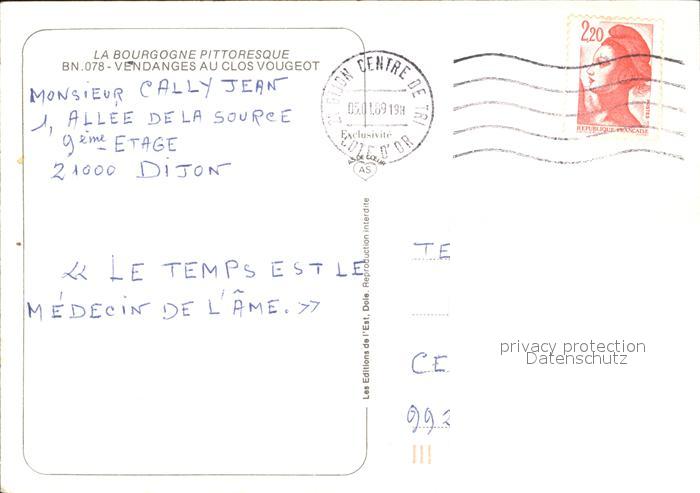 LA BOURGOGNE PITTORESQUE
BN.078 - VENDANGES AU CLOS VOUGEOT
MONSIEUR CALLY JEAN
1, ALLÉE DE LA SOURCE
9ème ETAGE
21000 DIJON
« LE TEMPS EST LE
MÉDECIN DE L'ÂME. »
Les Editions de l'Est, Dole. Reproduction interdite
DIJON CENTRE DE TRI
19H
COTE D'OR
Exclusivité
AS DE CŒUR
AS
2,20
REPUBLIQUE FRANÇAISE
TE
CE
992
privacy protection
Datenschutz